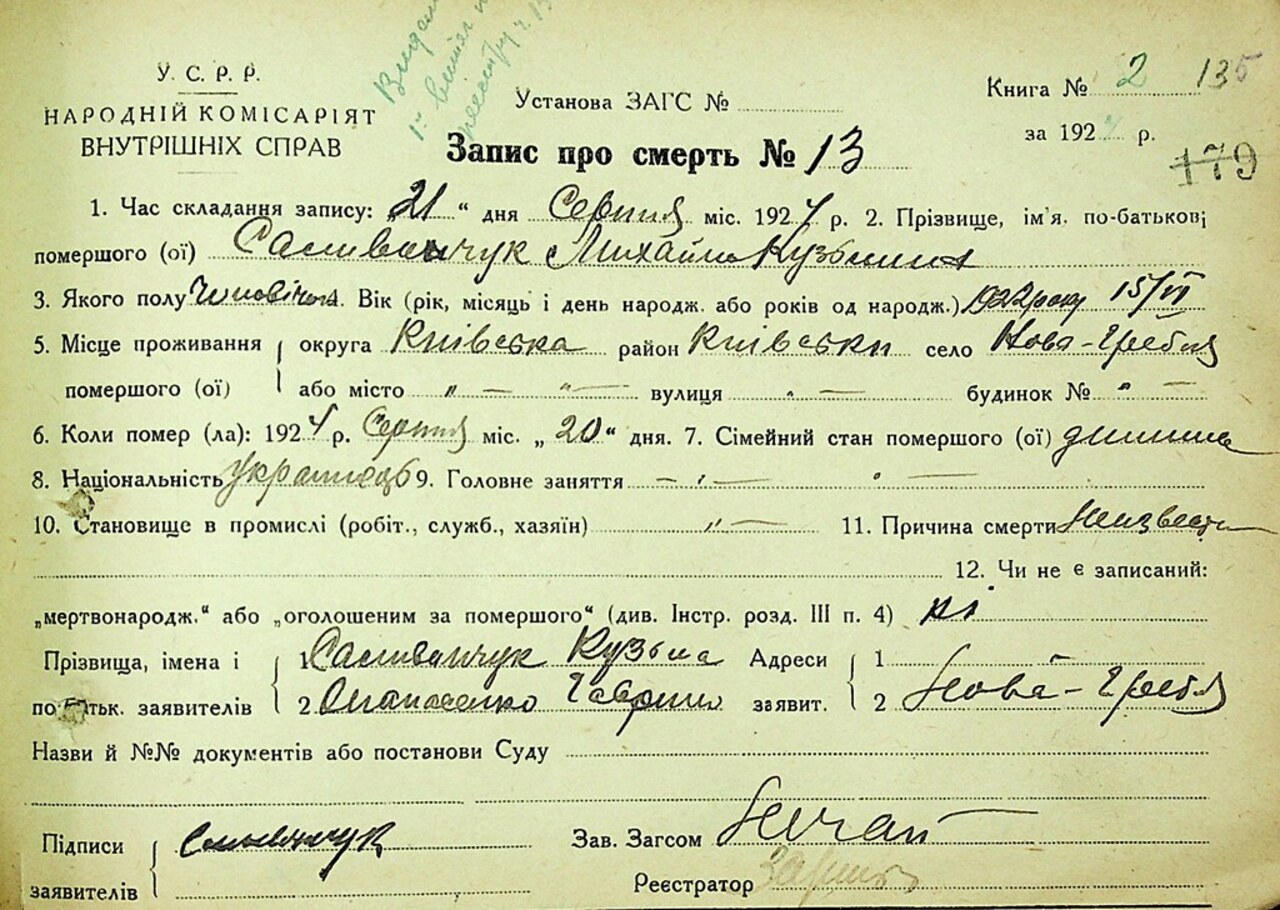 У. С. Р. Р.
НАРОДНІЙ КОМІСАРІЯТ
ВНУТРІШНІХ СПРАВ
Установа ЗАГС №
Книга № 2 135
за 192 р.
179
Запис про смерть № 13
1. Час складання запису: „21“ дня Серпня міс. 1924 р. 2. Прізвище, ім'я, по-батькові
помершого (ої) Саливанчук Михайло Кузьмич
3. Якого полу Чоловічого 4. Вік (рік, місяць і день народж. або років од народж.) 1922 року 15/VI
5. Місце проживання округа Київська район Київськи село Нова-Гребля
помершого (ої) або місто „ — „ — вулиця „ — будинок № „ —
6. Коли помер (ла): 1924 р. Серпня міс. „20“ дня. 7. Сімейний стан помершого (ої) дитина
8. Національність Українець 9. Головне заняття — „ — „ —
10. Становище в промислі (робіт., служб., хазяїн) „ — 11. Причина смерти Неизвестн
12. Чи не є записаний:
„мертвонародж.“ або „оголошеним за помершого“ (див. Інстр. розд. III п. 4) ні
Прізвища, імена і 1 Саливанчук Кузьма Адреси 1
по-батьк. заявителів 2 Опанасенко Гаврило заявит. 2 Нова-Гребля
Назви й №№ документів або постанови Суду
Підписи Саливанчук Зав. Загсом Нечай
заявителів Реєстратор